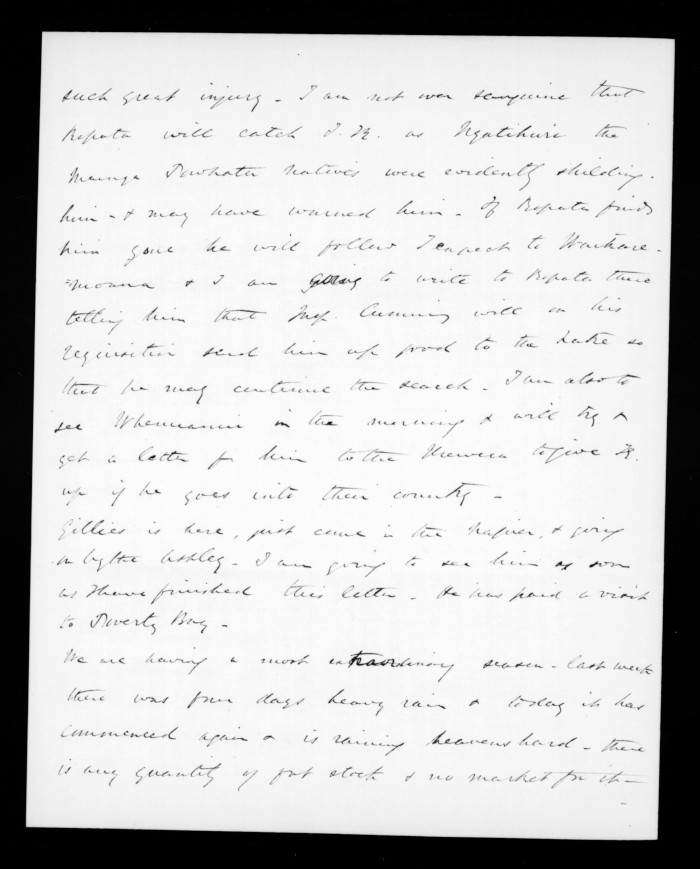 such great injury - I am not over sanguine that
Ropata will catch T.K. as Ngatihuri the
Maunga Powhatu natives were evidently shilding.
him - & may have warned him - If Ropata finds
him gone he will follow I expect to Waikare-
=moana & I am going to write to Ropata there
telling him that Insp. Cumming will on his
requisition send him up food to the Lake so
that he may continue the search - I am also to
see in the morning & will try &
get a letter fr him to the Urewera to give K.
up if he goes into their country -
Gillies is here, just came in the Napier, & going
on by the Ashley - I am going to see him as soon
as I have finished this letter - He has paid a visit
to Poverty Bay -
We are having a most extraordinary season - last week
there was four days heavy rain & today it has
commenced again & is raining heavens hard - there
is any quantity of fat stock & no market for it -